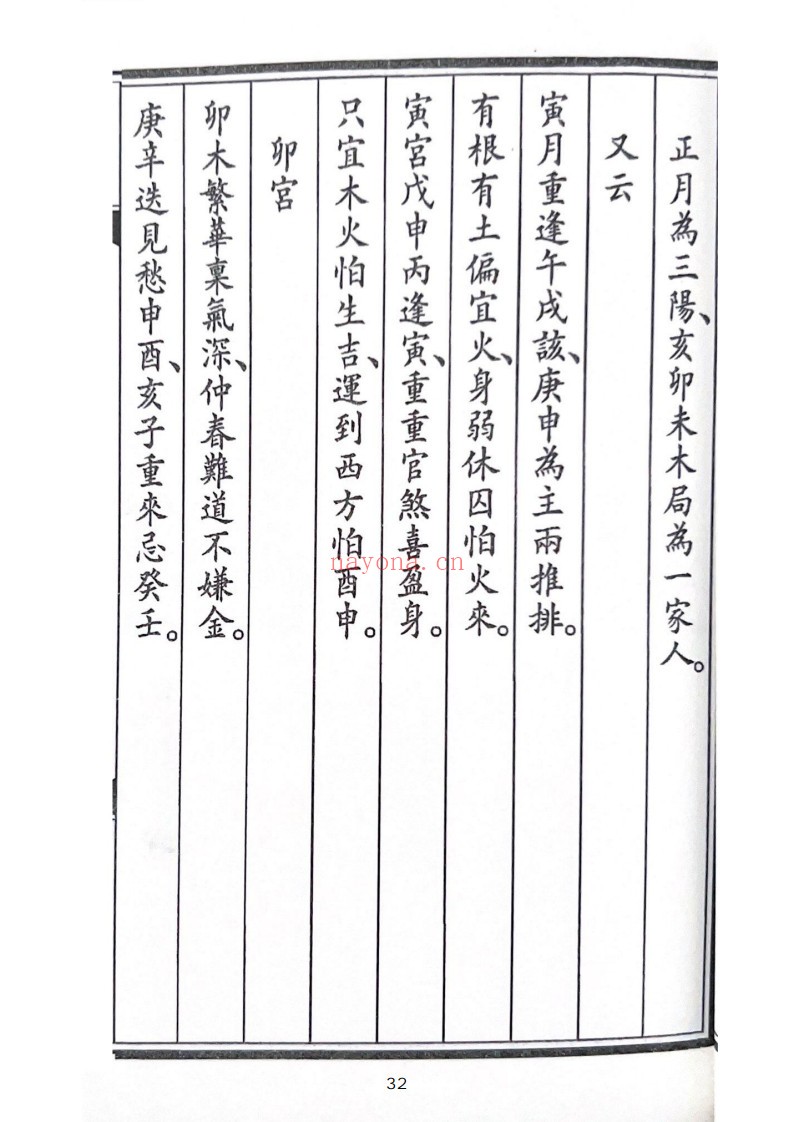 正月為三陽、亥卯未木局為一家人。
又云
寅月重逢午戌該、庚申為主兩推排。
有根有土偏宜火、身弱休囚怕火來。
寅宮戊申丙逢寅、重重官煞喜盈身。
只宜木火怕生吉、運到西方怕酉申。
卯宮
卯木繁華稟氣深、仲春難道不嫌金。
庚辛迭見愁申酉、亥子重來忌癸壬。
nayona.cn
32